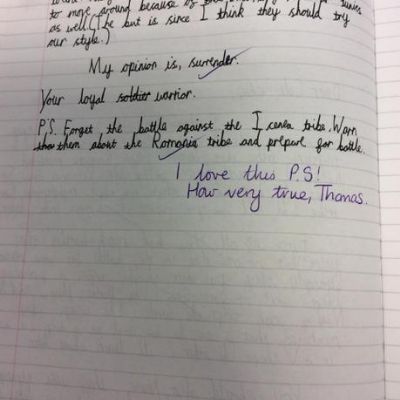 to move around because of
as well (The but is since I think they should try
our style.)
My opinion is, surrender.
Your loyal soldier warrior.
P.S. Forget the battle against the Icenea tribe. Warn
them about the Romania tribe and prepare for battle.
I love this P.S!
How very true, Thomas.